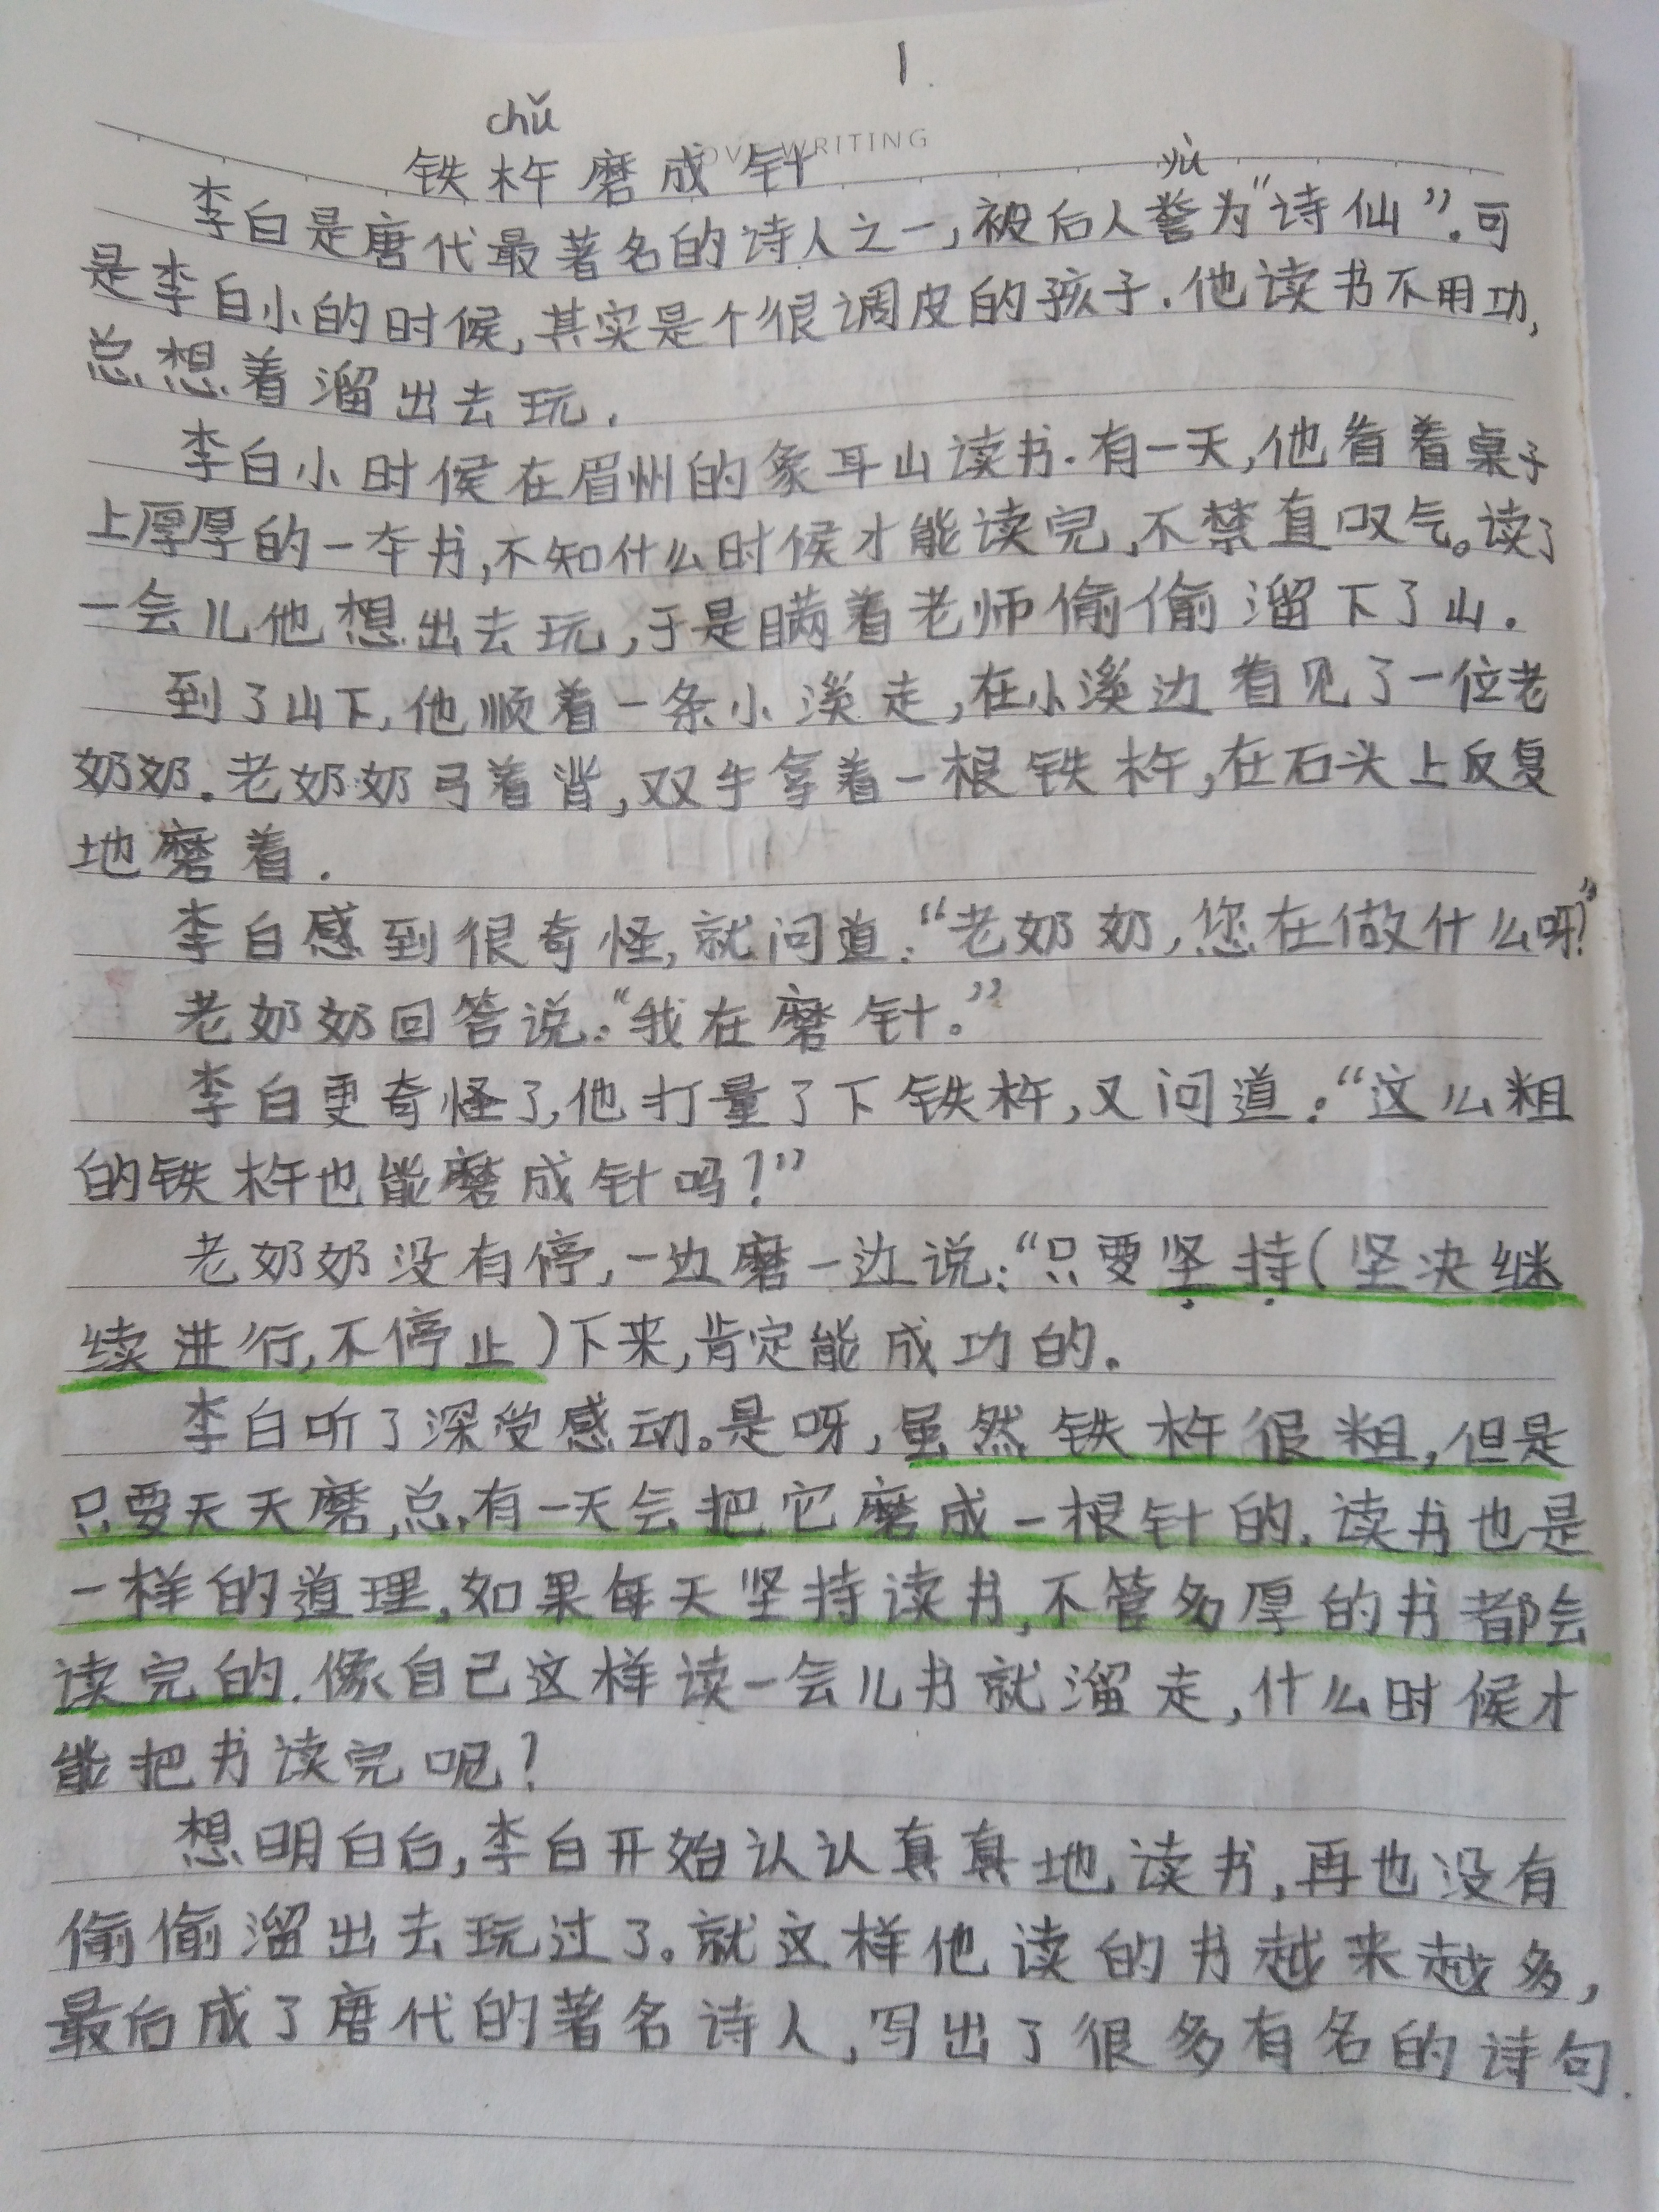 1
chǔ
LOVE WRITING
铁杵磨成针
yù
李白是唐代最著名的诗人之一,被后人誉为“诗仙”.可
是李白小的时候,其实是个很调皮的孩子.他读书不用功,
总想着溜出去玩.
李白小时候在眉州的象耳山读书.有一天,他看着桌子
上厚厚的一本书,不知什么时候才能读完,不禁直叹气。读了
一会儿他想出去玩,于是瞒着老师偷偷溜下了山.
到了山下,他顺着一条小溪走,在小溪边看见了一位老
奶奶.老奶奶弓着背,双手拿着一根铁杵,在石头上反复
地磨着.
李白感到很奇怪,就问道:“老奶奶,您在做什么呀?”
老奶奶回答说:“我在磨针。”
李白更奇怪了,他打量了下铁杵,又问道:“这么粗
的铁杵也能磨成针吗?”
老奶奶没有停,一边磨一边说:“只要坚持(坚决继
续进行,不停止)下来,肯定能成功的.
李白听了深受感动。是呀,虽然铁杵很粗,但是
只要天天磨,总有一天会把它磨成一根针的.读书也是
一样的道理,如果每天坚持读书,不管多厚的书都会
读完的.像自己这样读一会儿书就溜走,什么时候才
能把书读完呢?
想明白后,李白开始认认真真地读书,再也没有
偷偷溜出去玩过了。就这样他读的书越来越多,
最后成了唐代的著名诗人,写出了很多有名的诗句.